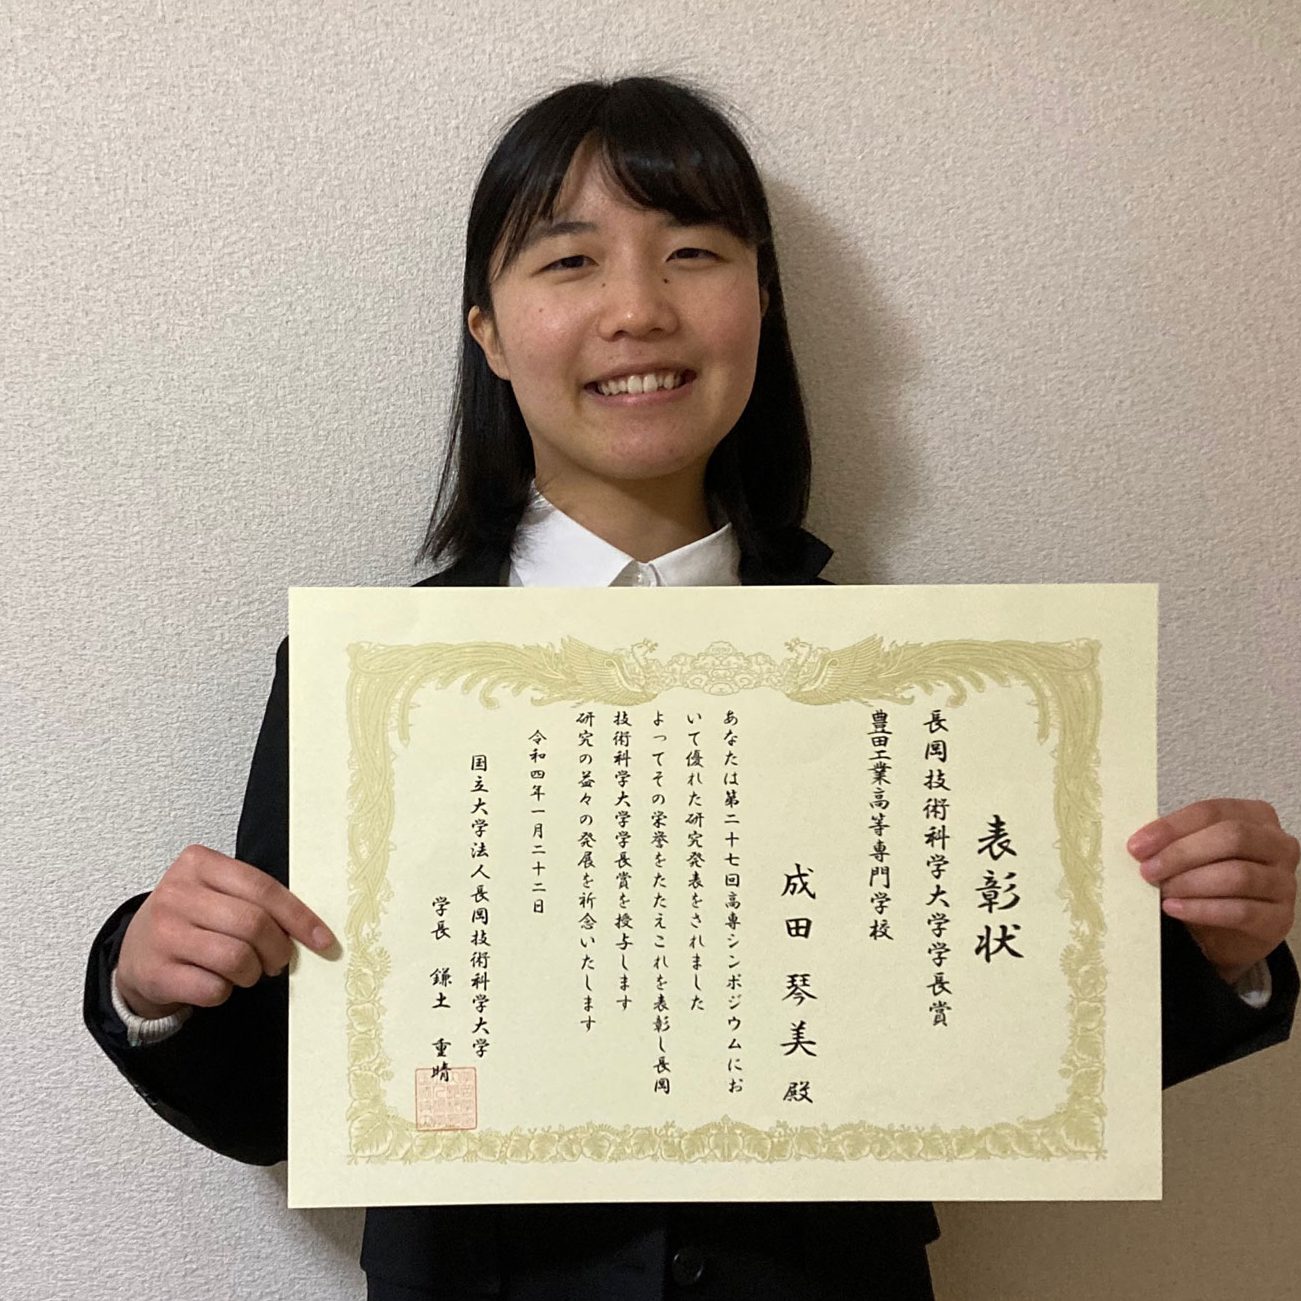 表彰状
長岡技術科学大学学長賞
豊田工業高等専門学校
成田琴美殿
あなたは第二十七回高専シンポジウムにお
いて優れた研究発表をされました
よってその栄誉をたたえこれを表彰し長岡
技術科学大学学長賞を授与します
研究の益々の発展を祈念いたします
令和四年一月二十二日
国立大学法人長岡技術科学大学
学長 鎌土 重晴